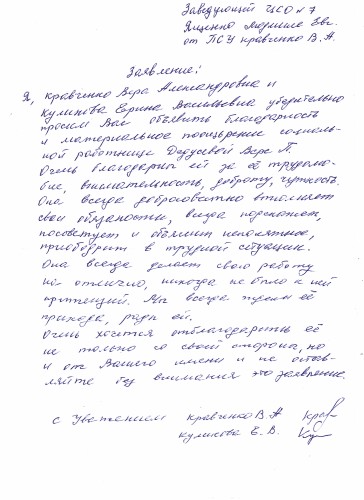 Заведующей ЦСО №7
Ященко Людмиле Евг.
от ПСУ Кравченко В.А.
Заявление:
Я, Кравченко Вера Александровна и
Куликова Ерина Васильевна убедительно
просим Вас объявить благодарность
и материальное поощрение социаль-
ной работнице Дедусевой Вере П.
Очень благодарны ей за её трудолю-
бие, внимательность, доброту, чуткость.
Она всегда добросовестно выполняет
свои обязаности, всегда
посоветует и объяснит непонятное,
приободрит в трудной ситуации.
Она всегда делает свою работу
на отлично, никогда не было к ней
претензий. Мы всегда ждём её
прихода, рады ей.
Очень хочется отблагодарить её
не только со своей стороны, но
и от Вашего имени и не остав-
ляйте без внимания это заявление.
с Уважением Кравченко В.А
Куликова Е.В.